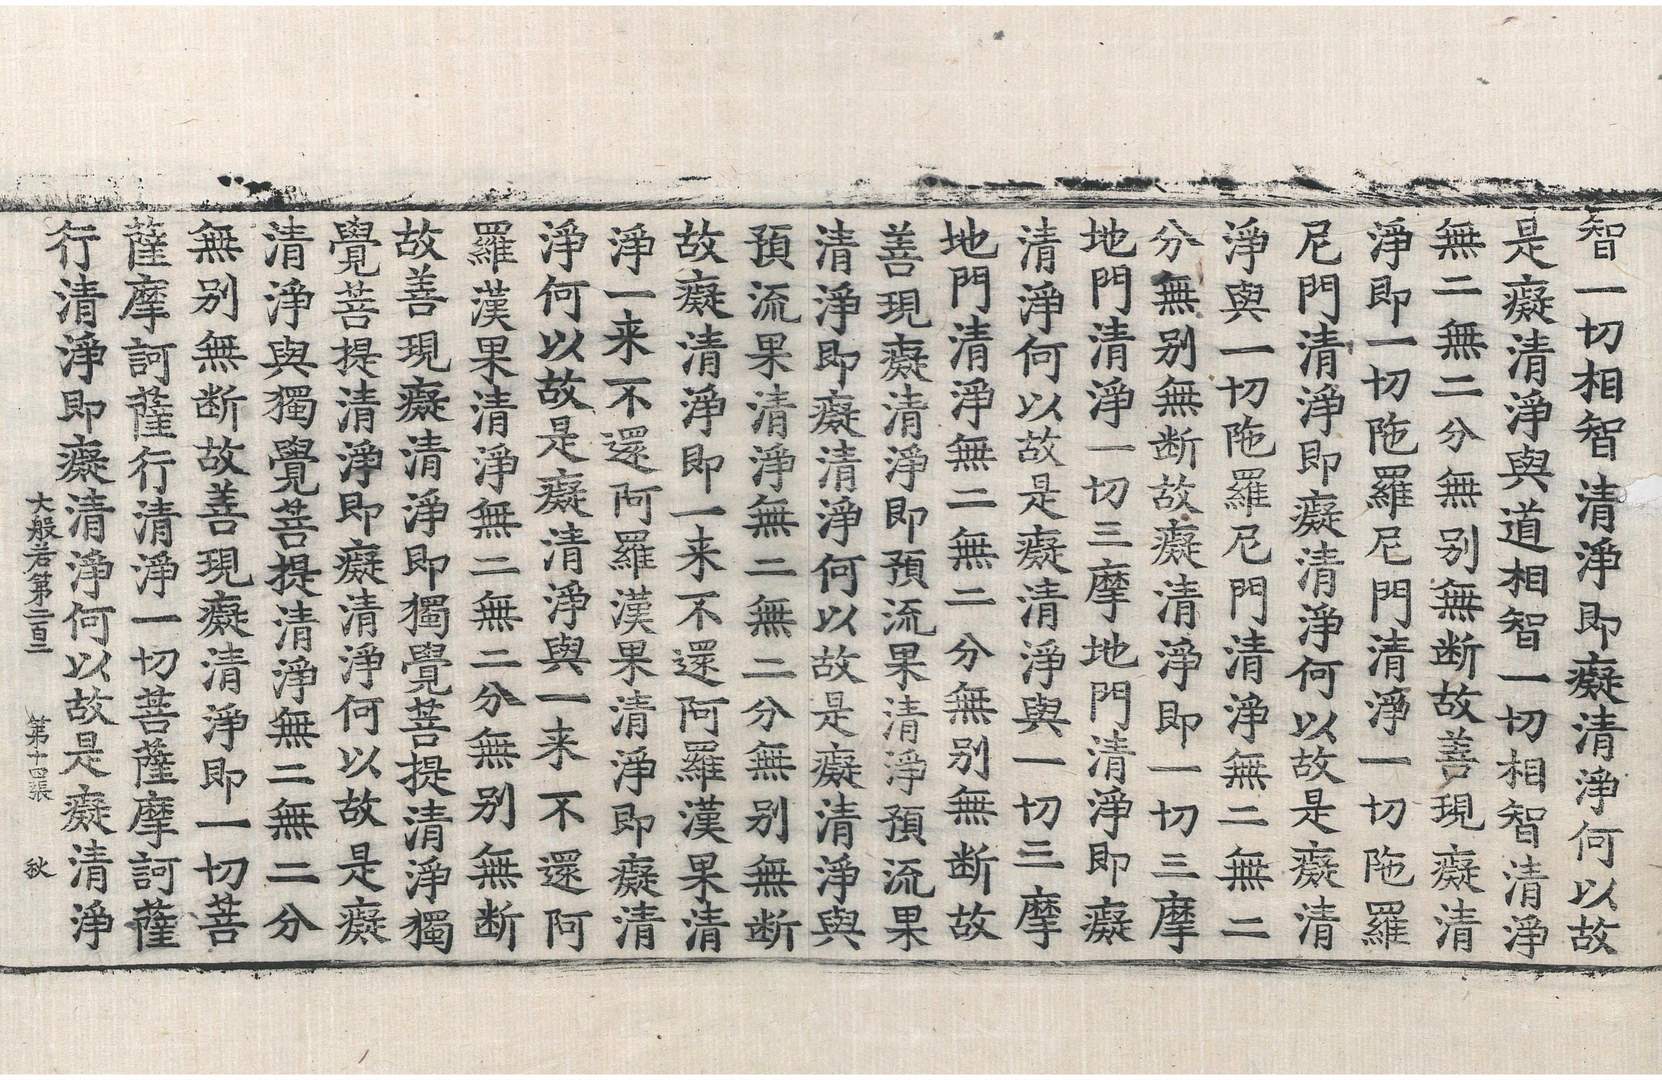 智一切相智清淨即癡清淨何以故
是癡清淨與道相智一切相智清淨
無二無二分無别無断故善現癡清
淨即一切陁羅尼門清淨一切陁羅
尼門清淨即癡清淨何以故是癡清
淨與一切陁羅尼門清淨無二無二
分無别無断故癡清淨即一切三摩
地門清淨一切三摩地門清淨即癡
清淨何以故是癡清淨與一切三摩
地門清淨無二無二分無别無断故
善現癡清淨即預流果清淨預流果
清淨即癡清淨何以故是癡清淨與
預流果清淨無二無二分無别無断
故癡清淨即一来不還阿羅漢果清
淨一来不還阿羅漢果清淨即癡清
淨何以故是癡清淨與一来不還阿
羅漢果清淨無二無二分無别無断
故善現癡清淨即獨覺菩提清淨獨
覺菩提清淨即癡清淨何以故是癡
清淨與獨覺菩提清淨無二無二分
無别無断故善現癡清淨即一切菩
薩摩訶薩行清淨一切菩薩摩訶薩
行清淨即癡清淨何以故是癡清淨
大般若第二百二 第十四張 秋